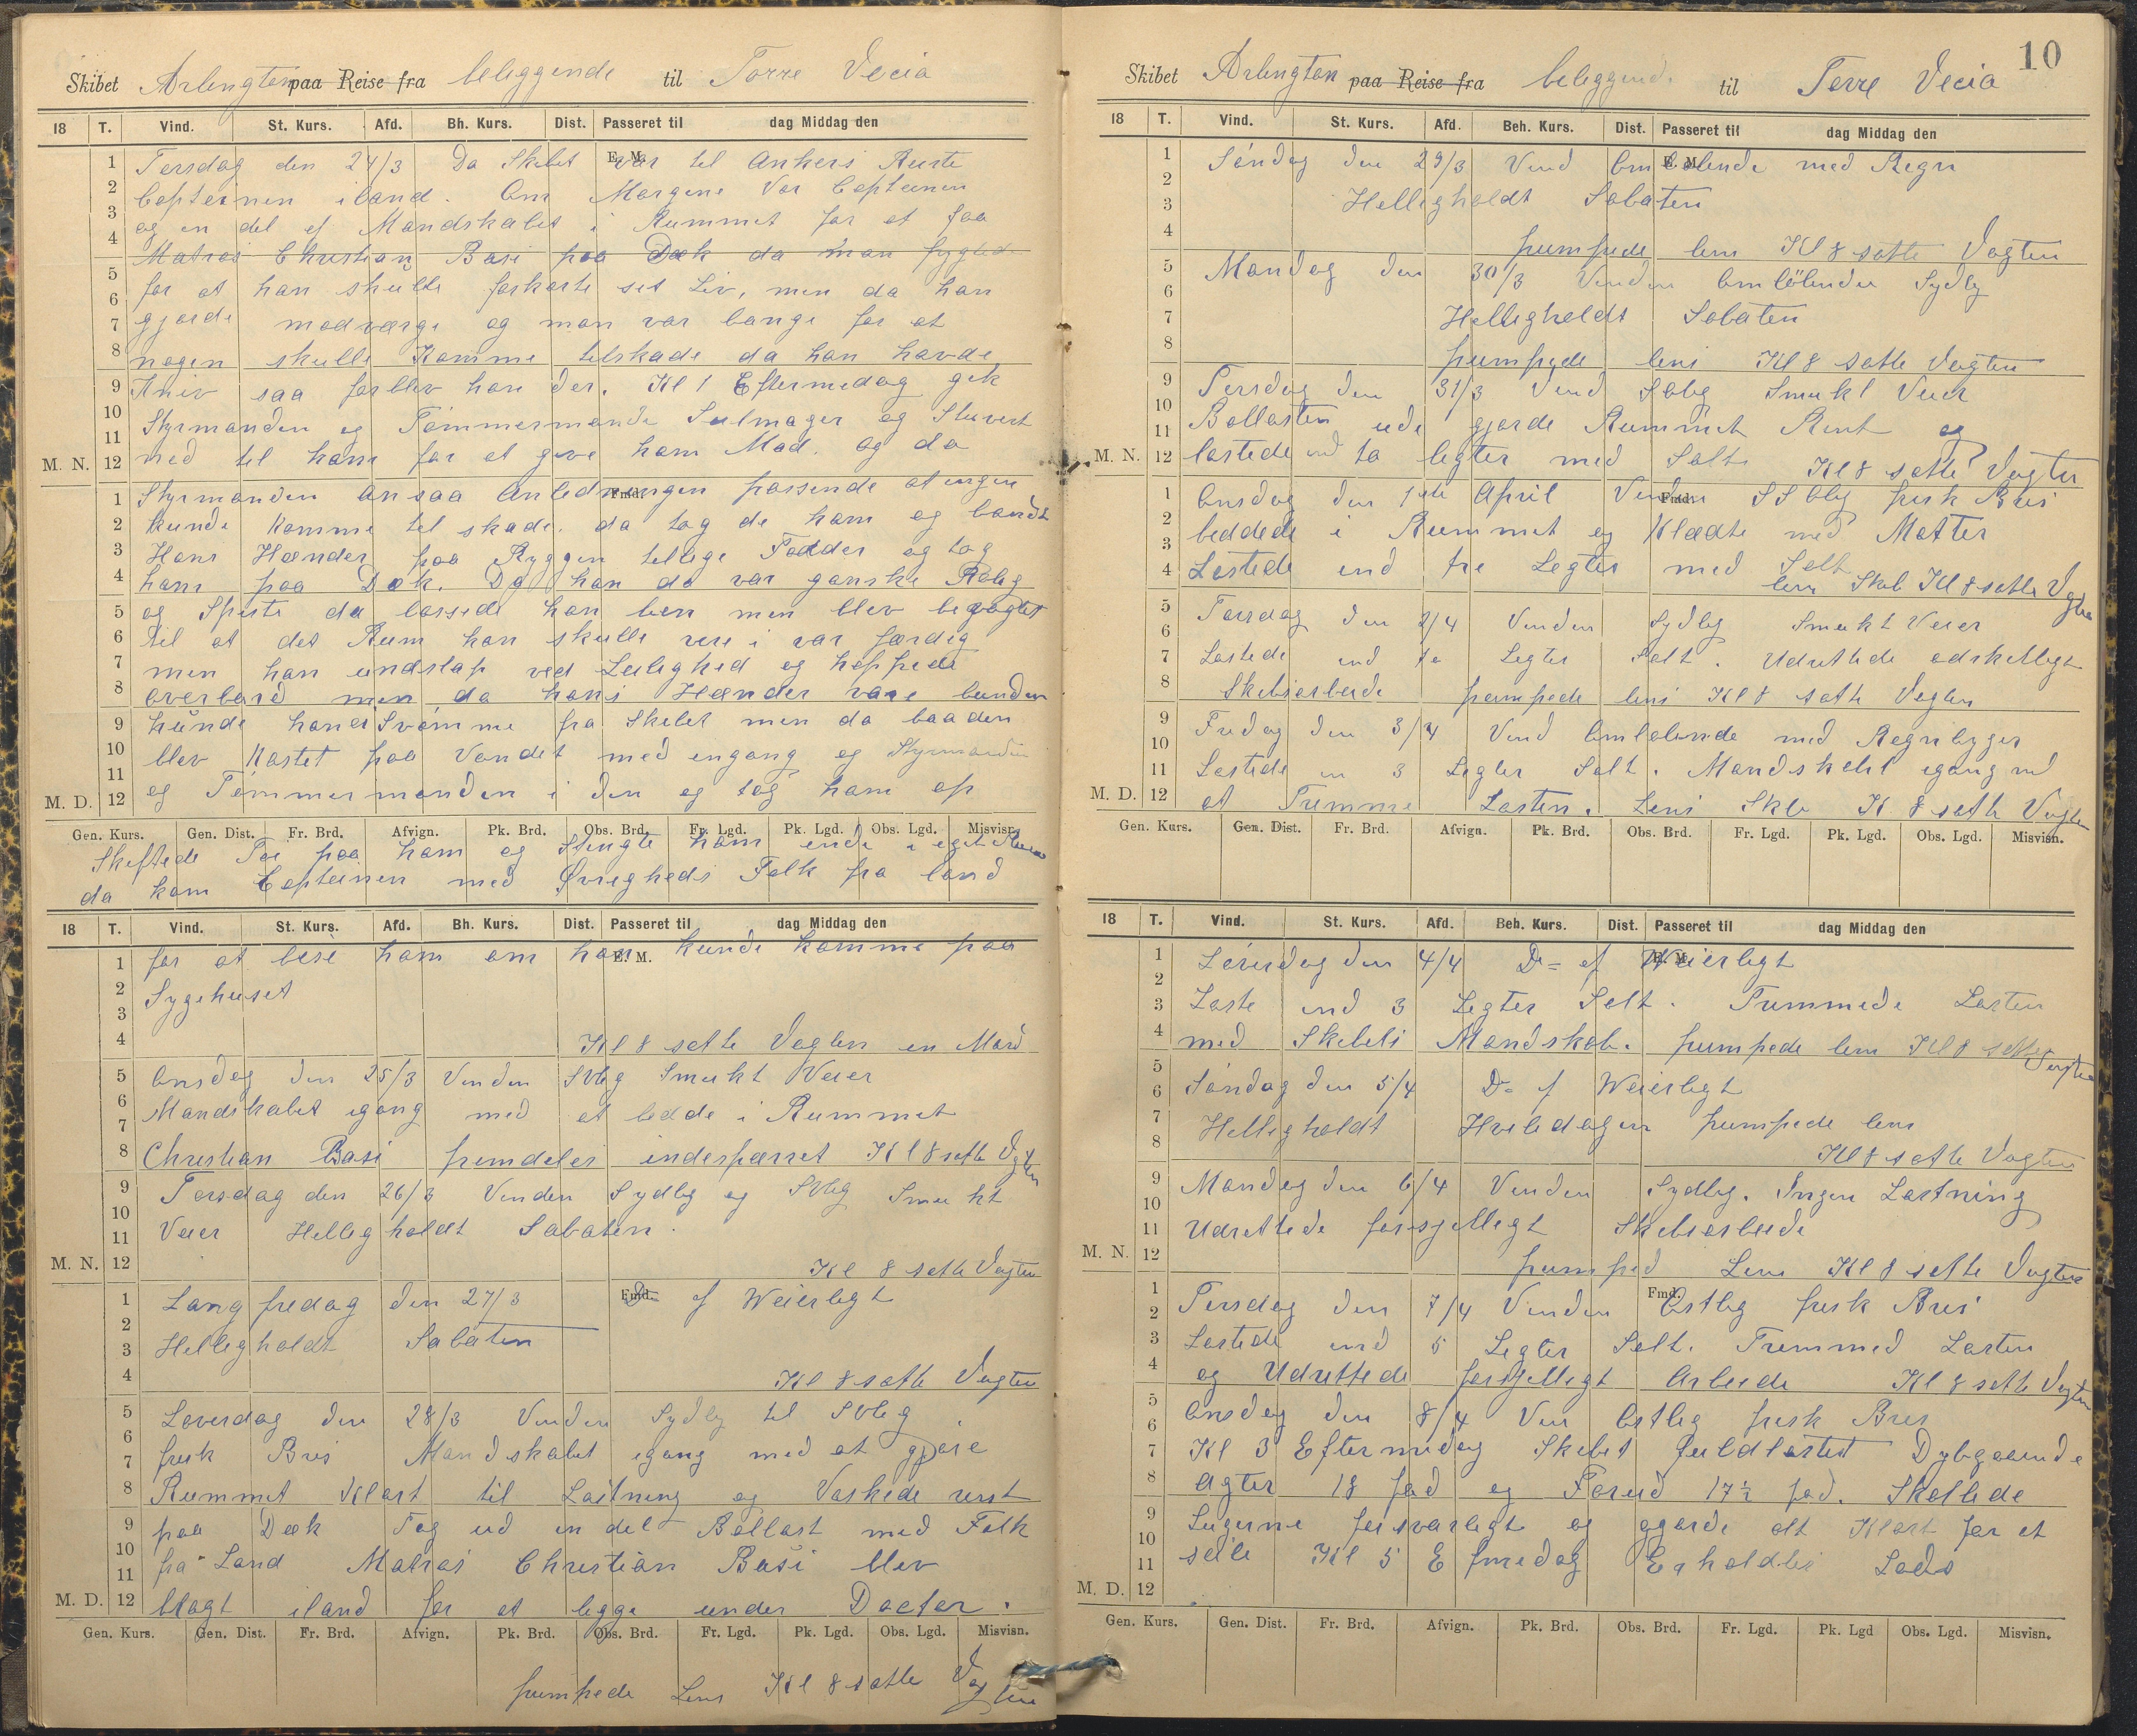 Skibet Arlington paa Reise fra beleggende til Torre Vecia
18 T. Vind. St. Kurs. Afd. Bh. Kurs. Dist. Passeret til dag Middag den
E. M.
Tersdag den 24/3 Da Skibet var til Ankers Reiste
Capteinen iland. Om Morgene Var Capteinen
og en del af Mandskabet i Rummet for at faa
Matros Christian Basi paa Dæk da man frygted
for at han skulle forkorte set Liv, men da han
gjorde modværge og man var bange for at
nogen skulle Komme telskade da han havde
Kniv saa forblev han der. Kl 1 Eftermedag gik
Styrmanden og Tømmermande Seilmager og Stuvert
M. N. ned til ham for at give ham Mad. og da
Fmd.
Styrmanden ansaa Anledningen passende at ingen
kunde Komme tel skade. da tog de ham og bandt
Hans Hænder paa Ryggen tellige Fødder og tog
ham paa Dæk. Da han da var ganske Rolig
og Speste da lossede han ben men blev bevogtet
til at det Rum han skulle vere i var færdig
men han undslap ved Leilighed og hoppede
overbord men da hans Hænder vare bunden
kunde han ei Svømme fra Skibet men da baaden
blev Kastet paa Vandet med engang og Styrmanden
M. D. og Tømmermanden i den og tog ham op
Gen. Kurs. Gen. Dist. Fr. Brd. Afvign. Pk. Brd. Obs. Brd. Fr. Lgd. Pk. Lgd. Obs. Lgd. Misvisn.
Skiftede Tøi paa ham og Stengte ham inde i eget Rum
da kom Capteinen med Øvrigheds Folk fra land
18 T. Vind. St. Kurs. Afd. Bh. Kurs. Dist. Passeret til dag Middag den
E. M.
for at bese ham om han kunde komme paa
Sygehuset
Kl 8 satte Vagten en Mand
Onsdag den 25/3 Vinden SVlig Smukt Veier
Mandskabet igang med at bedde i Rummet
Christian Basi fremdeles indesparret Kl 8 satte Vagten
Torsdag den 26/3 Vinden Sydlig og SVlig Smukt
Veier Hellig holdt Sabaten.
M. N. Kl 8 satte Vagten
Fmd.
Lang fredag den 27/3 D= of Weierlegt
Hellig holdt Sabaten
Kl 8 satte Vagten
Løverdag den 28/3 Vinden Sydlig til SVlig
frisk Bris Mandskabet igang med at gjøre
Rummet Klart til Lastning og Vaskede rent
paa Dæk Tog ud en del Ballast med Folk
fra Land Matros Christian Basi blev
M. D. bragt iland for at legge under Doctor.
Gen. Kurs. Gen. Dist. Fr. Brd. Afvign. Pk. Brd. Obs. Brd. Fr. Lgd. Pk. Lgd. Obs. Lgd. Misvisn.
pumpede Lens Kl 8 satte Vagten
10
Skibet Arlington paa Reise fra beleggende til Torre Vecia
18 T. Vind. St. Kurs. Afd. Beh. Kurs. Dist. Passeret til dag Middag den
E. M.
Søndag den 29/3 Vind Omløbende med Regn
Helligholdt Sabaten
pumpede lens Kl 8 satte Vagten
Mandag den 30/3 Vinden Omløbende Sydlig
Helligholdt Sabaten
pumpede lens Kl 8 satte Vagten
Tersdag den 31/3 Vind SOlig Smukt Veer
Ballasten ude gjorde Rummet Rent og
M. N. lastede ind to legter med Salt Kl 8 satte Vagten
Fmd.
Onsdag den 1ste April Vinden SSOlig frisk Bris
beddede i Rummet og Klædte med Matter
Lastede ind tre Legter med Salt
lens Skib Kl 8 satte Vagten
Torsdag den 2/4 Vinden Sydlig Smukt Veier
Lastede ind to Legter Salt. Udrettede adskelligt
Skibsarbeide pumpede lens Kl 8 satte Vagten
Fredag den 3/4 Vind Omløbende med Regnbyger
Lastede in 3 Legter Salt. Mandskabet igang med
M. D. at Trimme Lasten. Lens Skb Kl 8 satte Vagten
Gen. Kurs. Gen. Dist. Fr. Brd. Afvign. Pk. Brd. Obs. Brd. Fr. Lgd. Pk. Lgd. Obs. Lgd. Misvisn.
18 T. Vind. St. Kurs. Afd. Beh. Kurs. Dist. Passeret til dag Middag den
E. M.
Løverdag den 4/4 D= of Weierlegt
Laste ind 3 Legter Salt. Trimmede Lasten
med Skibets Mandskab. pumpede lens Kl 8 satte Vagten
Søndag den 5/4 D= of Weierlegt
Helligholdt Hviledagen pumpede lens
Kl 8 satte Vagten
Mandag den 6/4 Vinden Sydlig. Ingen Lastning
Udrettede forsjelligt Skibsarbeide
M. N. pumped Lens Kl 8 satte Vagten
Fmd.
Tersdag den 7/4 Vinden Ostlig frisk Bris
Lastede ind 5 Legter Salt. Trimmed Lasten
og Udrettede forsjelligt Arbeide Kl 8 satte Vagten
Onsdag den 8/4 Ven Ostlig frisk Bris
Kl 3 Eftermedag Skibet fuldlastet Dybgaaende
Agter 18 fod og Forud 17½ fod. Skallede
Lugerne forsvarligt og gjorde alt Klart for at
seile Kl 5 Efmedag Erholdtes Lods
M. D.
Gen. Kurs. Gen. Dist. Fr. Brd. Afvign. Pk. Brd. Obs. Brd. Fr. Lgd. Pk. Lgd Obs. Lgd. Misvisn.